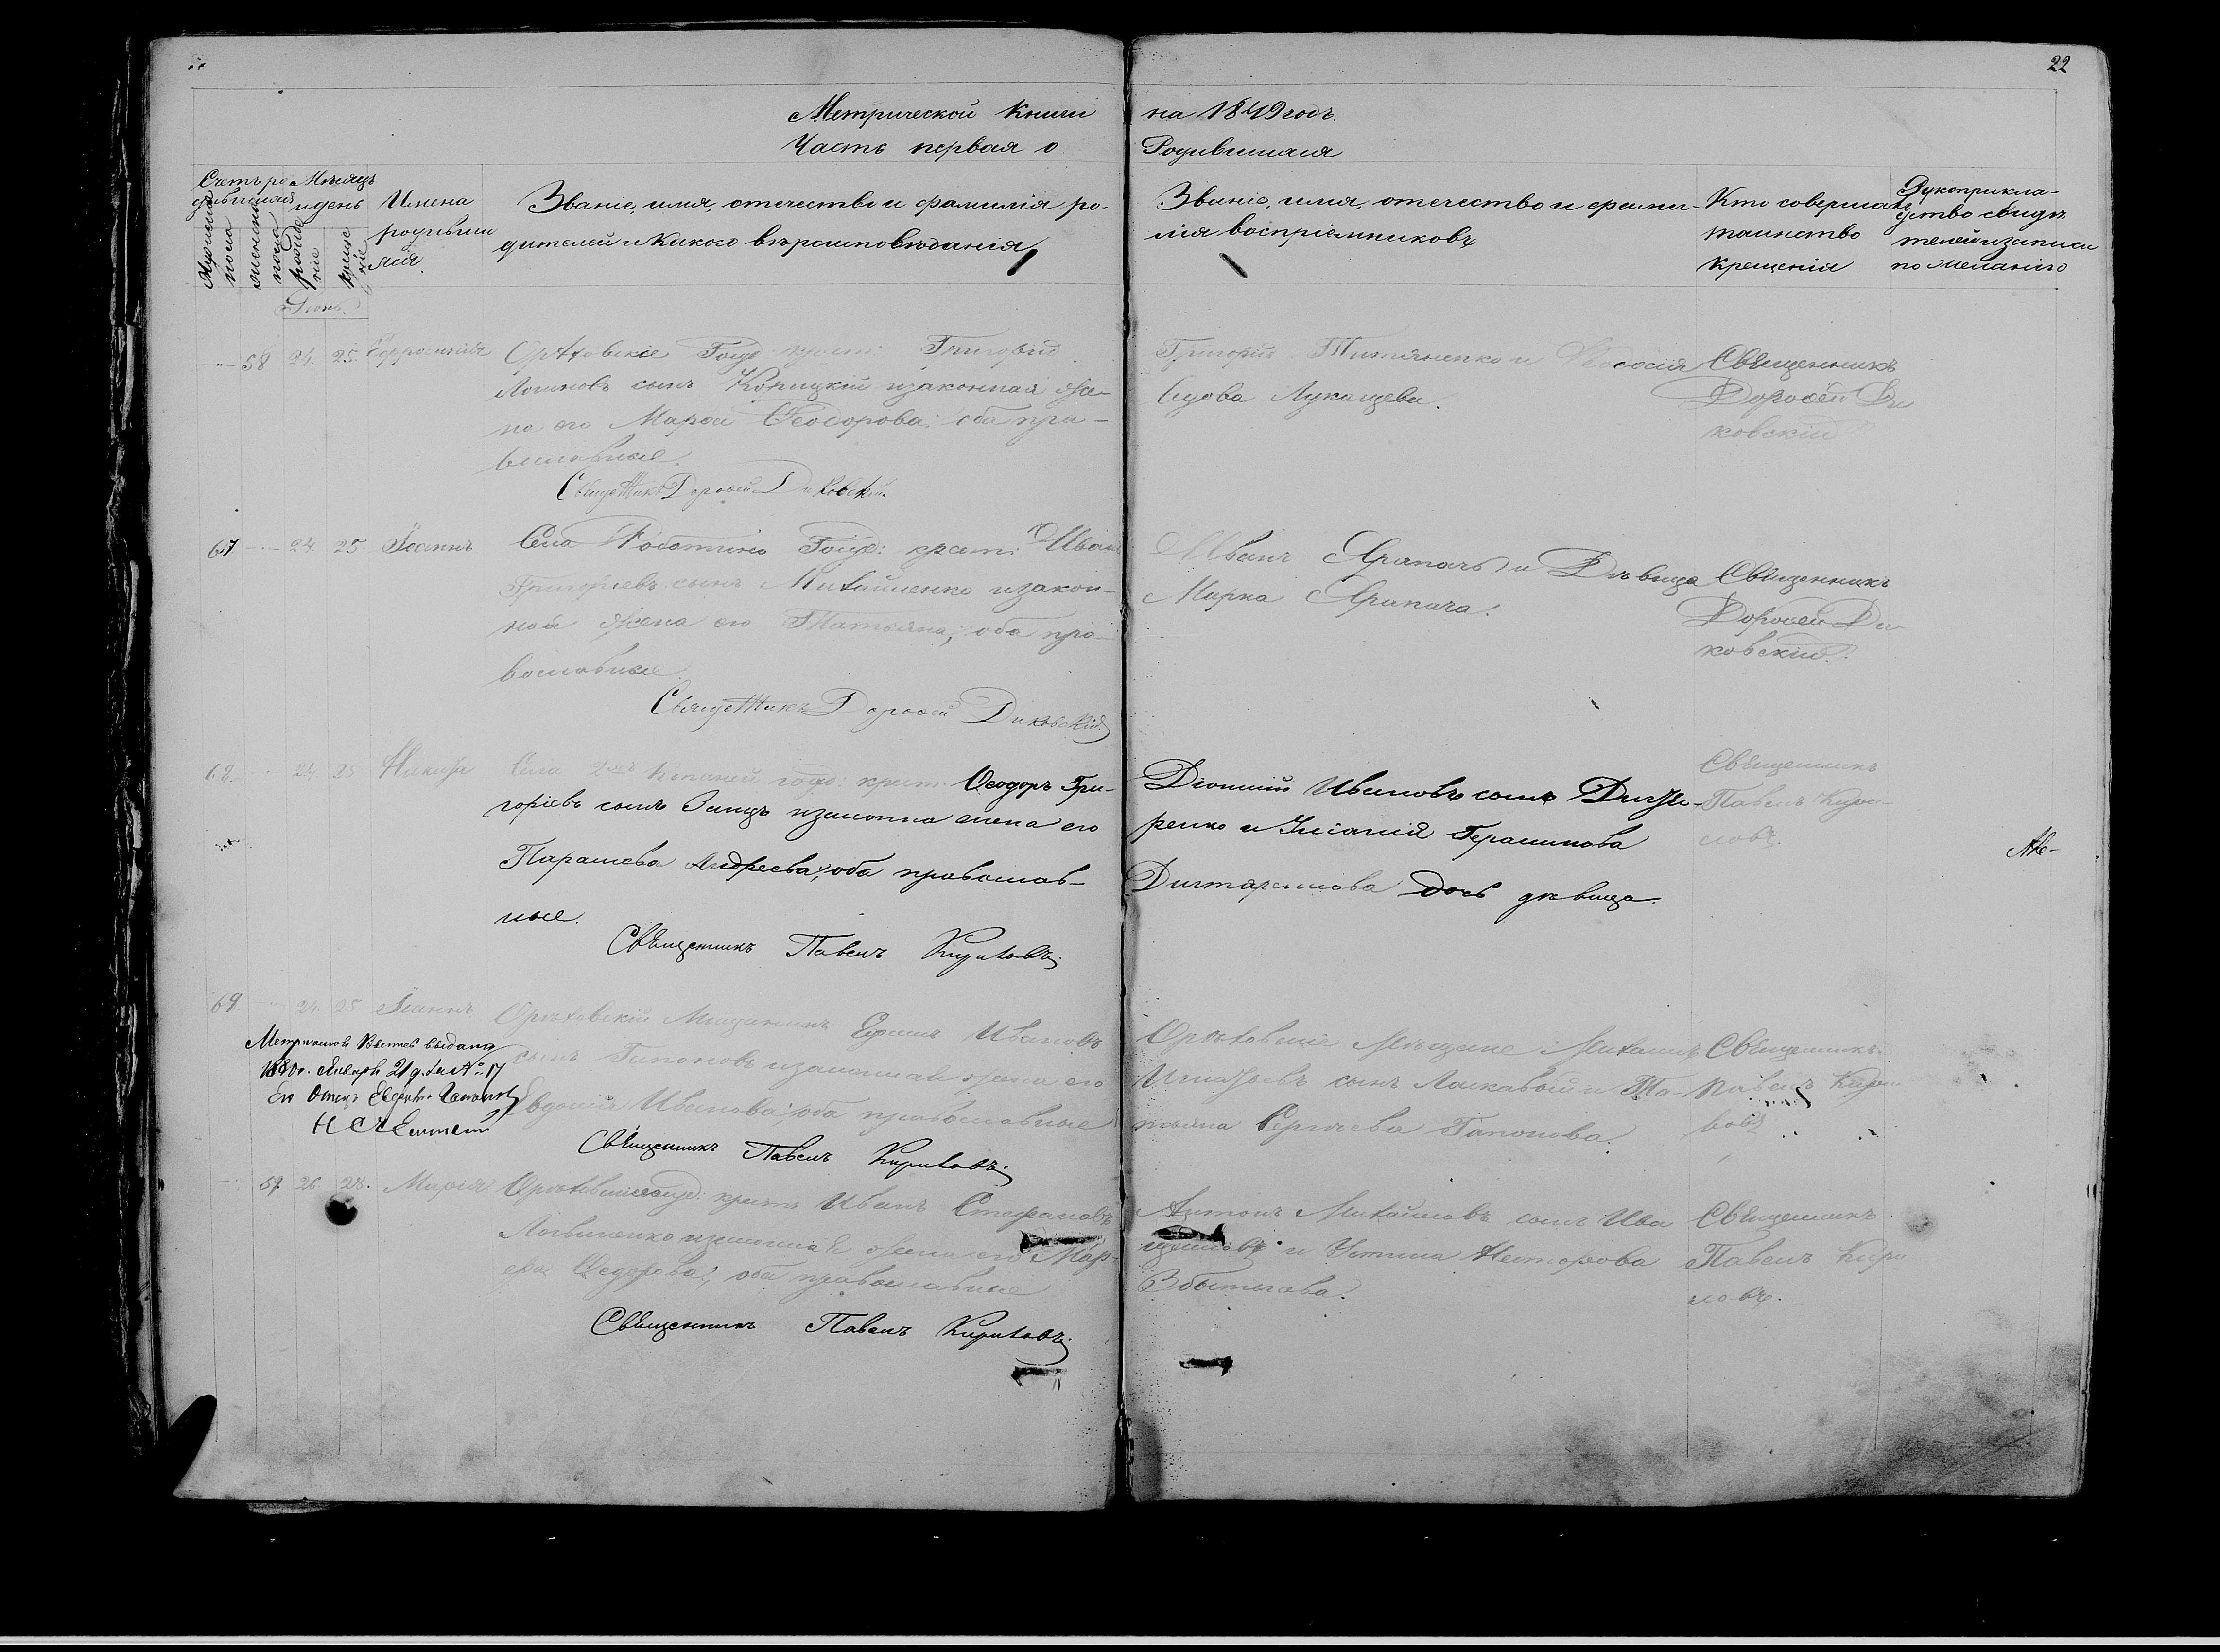 22
Метрической Книги на 1849 годъ.
Часть первая о Родившихся
Счетъ родившихся
Мужеска пола
женска пола
Мѣсяцъ и день
рожденіе
крещеніе
Имена родившихся.
Званіе, имя, отечество и фамилія ро-
дителей и Какого вѣроисповѣданія
Званіе, имя, отечество и фами-
лія воспріемниковъ
Кто совершалъ
таинство
крещенія
Рукоприкла-
дство свидѣ
телей и записи
по желанію
Іюнь.
58 24. 25. Евфросинія
Орѣховскіе Госуд: крест: Григорій
сынъ Корицкій и законная же-
на его Марѳа Ѳеодорова; оба пра-
вославные.
Священникъ Дороѳей Диковскій.
Григорій и Ѳеодосія
вдова Лукащева.
Священникъ
Дороѳей Ди
ковскій
67 24. 25 Іоаннъ
Села Госуд: крест: Иванъ
Григорьевъ сынъ Михайленко и закон-
ная жена его Татьяна; оба пра-
вославные.
Священникъ Дороѳей Диковскій
Иванъ Арапачъ и Дѣвица
Марка Арапача.
Священникъ
Дороѳей Ди
ковскій.
68. 24 25
Села Копаней госуд: крест: Ѳеодоръ Гри-
горіевъ сынъ Заицъ и законна жена его
Парасѣва Андреева; оба православ-
ные.
Священникъ Павелъ Кириловъ
Діонисій Ивановъ сынъ
ренко и Герасимова
дочь дѣвица.
Священникъ
Павелъ Кири-
ловъ.
69. 24 25 Іоаннъ
Орѣховскій Мѣщанинъ Ефимъ Ивановъ
сынъ Гапоновъ и законная жена его
Евдокія Иванова; оба православные
Священникъ Павелъ Кириловъ
Орѣховскіе Мѣщане Михаилъ
Игнатьевъ сынъ Ласкавый и Та-
тьяна Сергѣева Гапонова.
Священникъ
Павелъ Кири
ловъ
Января 21 д. за № 17
59. 26. 28. Марія
Орѣховскіе госуд: крест: Иванъ Стефановъ
Логвиненко и законная жена его Мар-
фа Ѳедорова; оба православные
Священникъ Павелъ Кириловъ
Антонъ Михайловъ сынъ Ива
щенковъ и Устина Несторова
Священникъ
Павелъ Кири
ловъ.